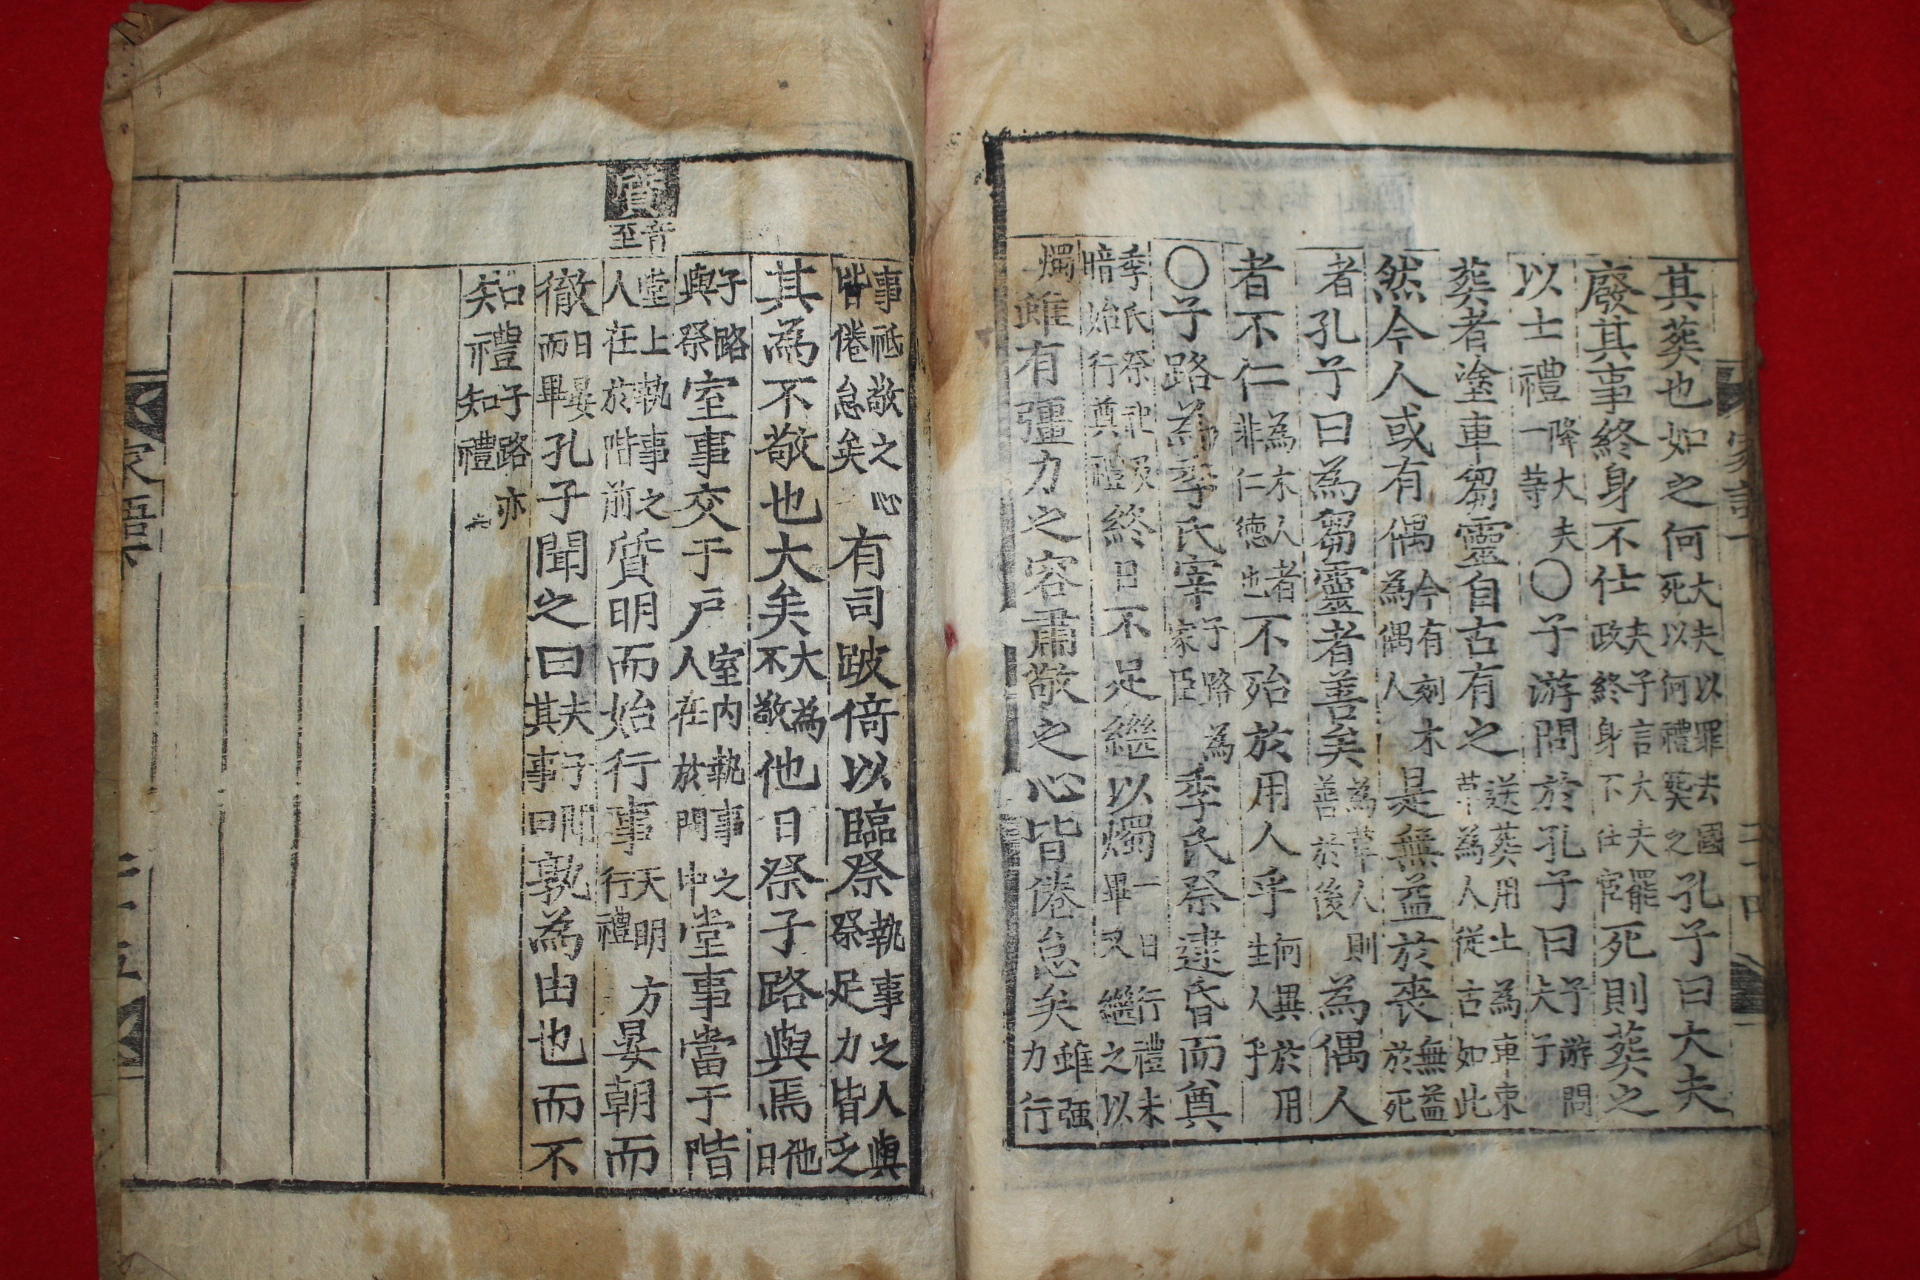 其葬也如之何大夫以罪去國死以何禮葬之孔子曰大夫
廢其事終身不仕夫子言大夫罷政終身不仕官死則葬之
以士禮降大夫一等〇子游問於孔子曰子游問夫子
葬者塗車芻靈自古有之送葬用土為車束草為人從古如此
然今人或有偶今有刻木為偶人是無益於喪無益於死
者孔子曰為芻靈者善矣為草人則善於後為偶人
者不仁為木人者非仁德也不殆於用人乎何異於用生人乎
〇子路為季氏宰子路為家臣季氏祭逮昏而奠
季氏祭祀及暗始行奠禮終日不足繼以燭一日行禮未畢又繼之以
燭雖有彊力之容肅敬之心皆倦怠矣雖强力行
事祗敬之心皆倦怠矣有司跛倚以臨祭執事之人與祭足力皆乏
其為不敬也大矣大為不敬他日祭子路與焉他日
子路與祭室事交于戶室内執事之人在於門中堂事當于階
質音至
堂上執事之人在於階前質明而始行事天明方行禮晏朝而
徹日晏而畢孔子聞之曰夫子聞其事曰孰為由也而不
知禮子路亦知禮
家語